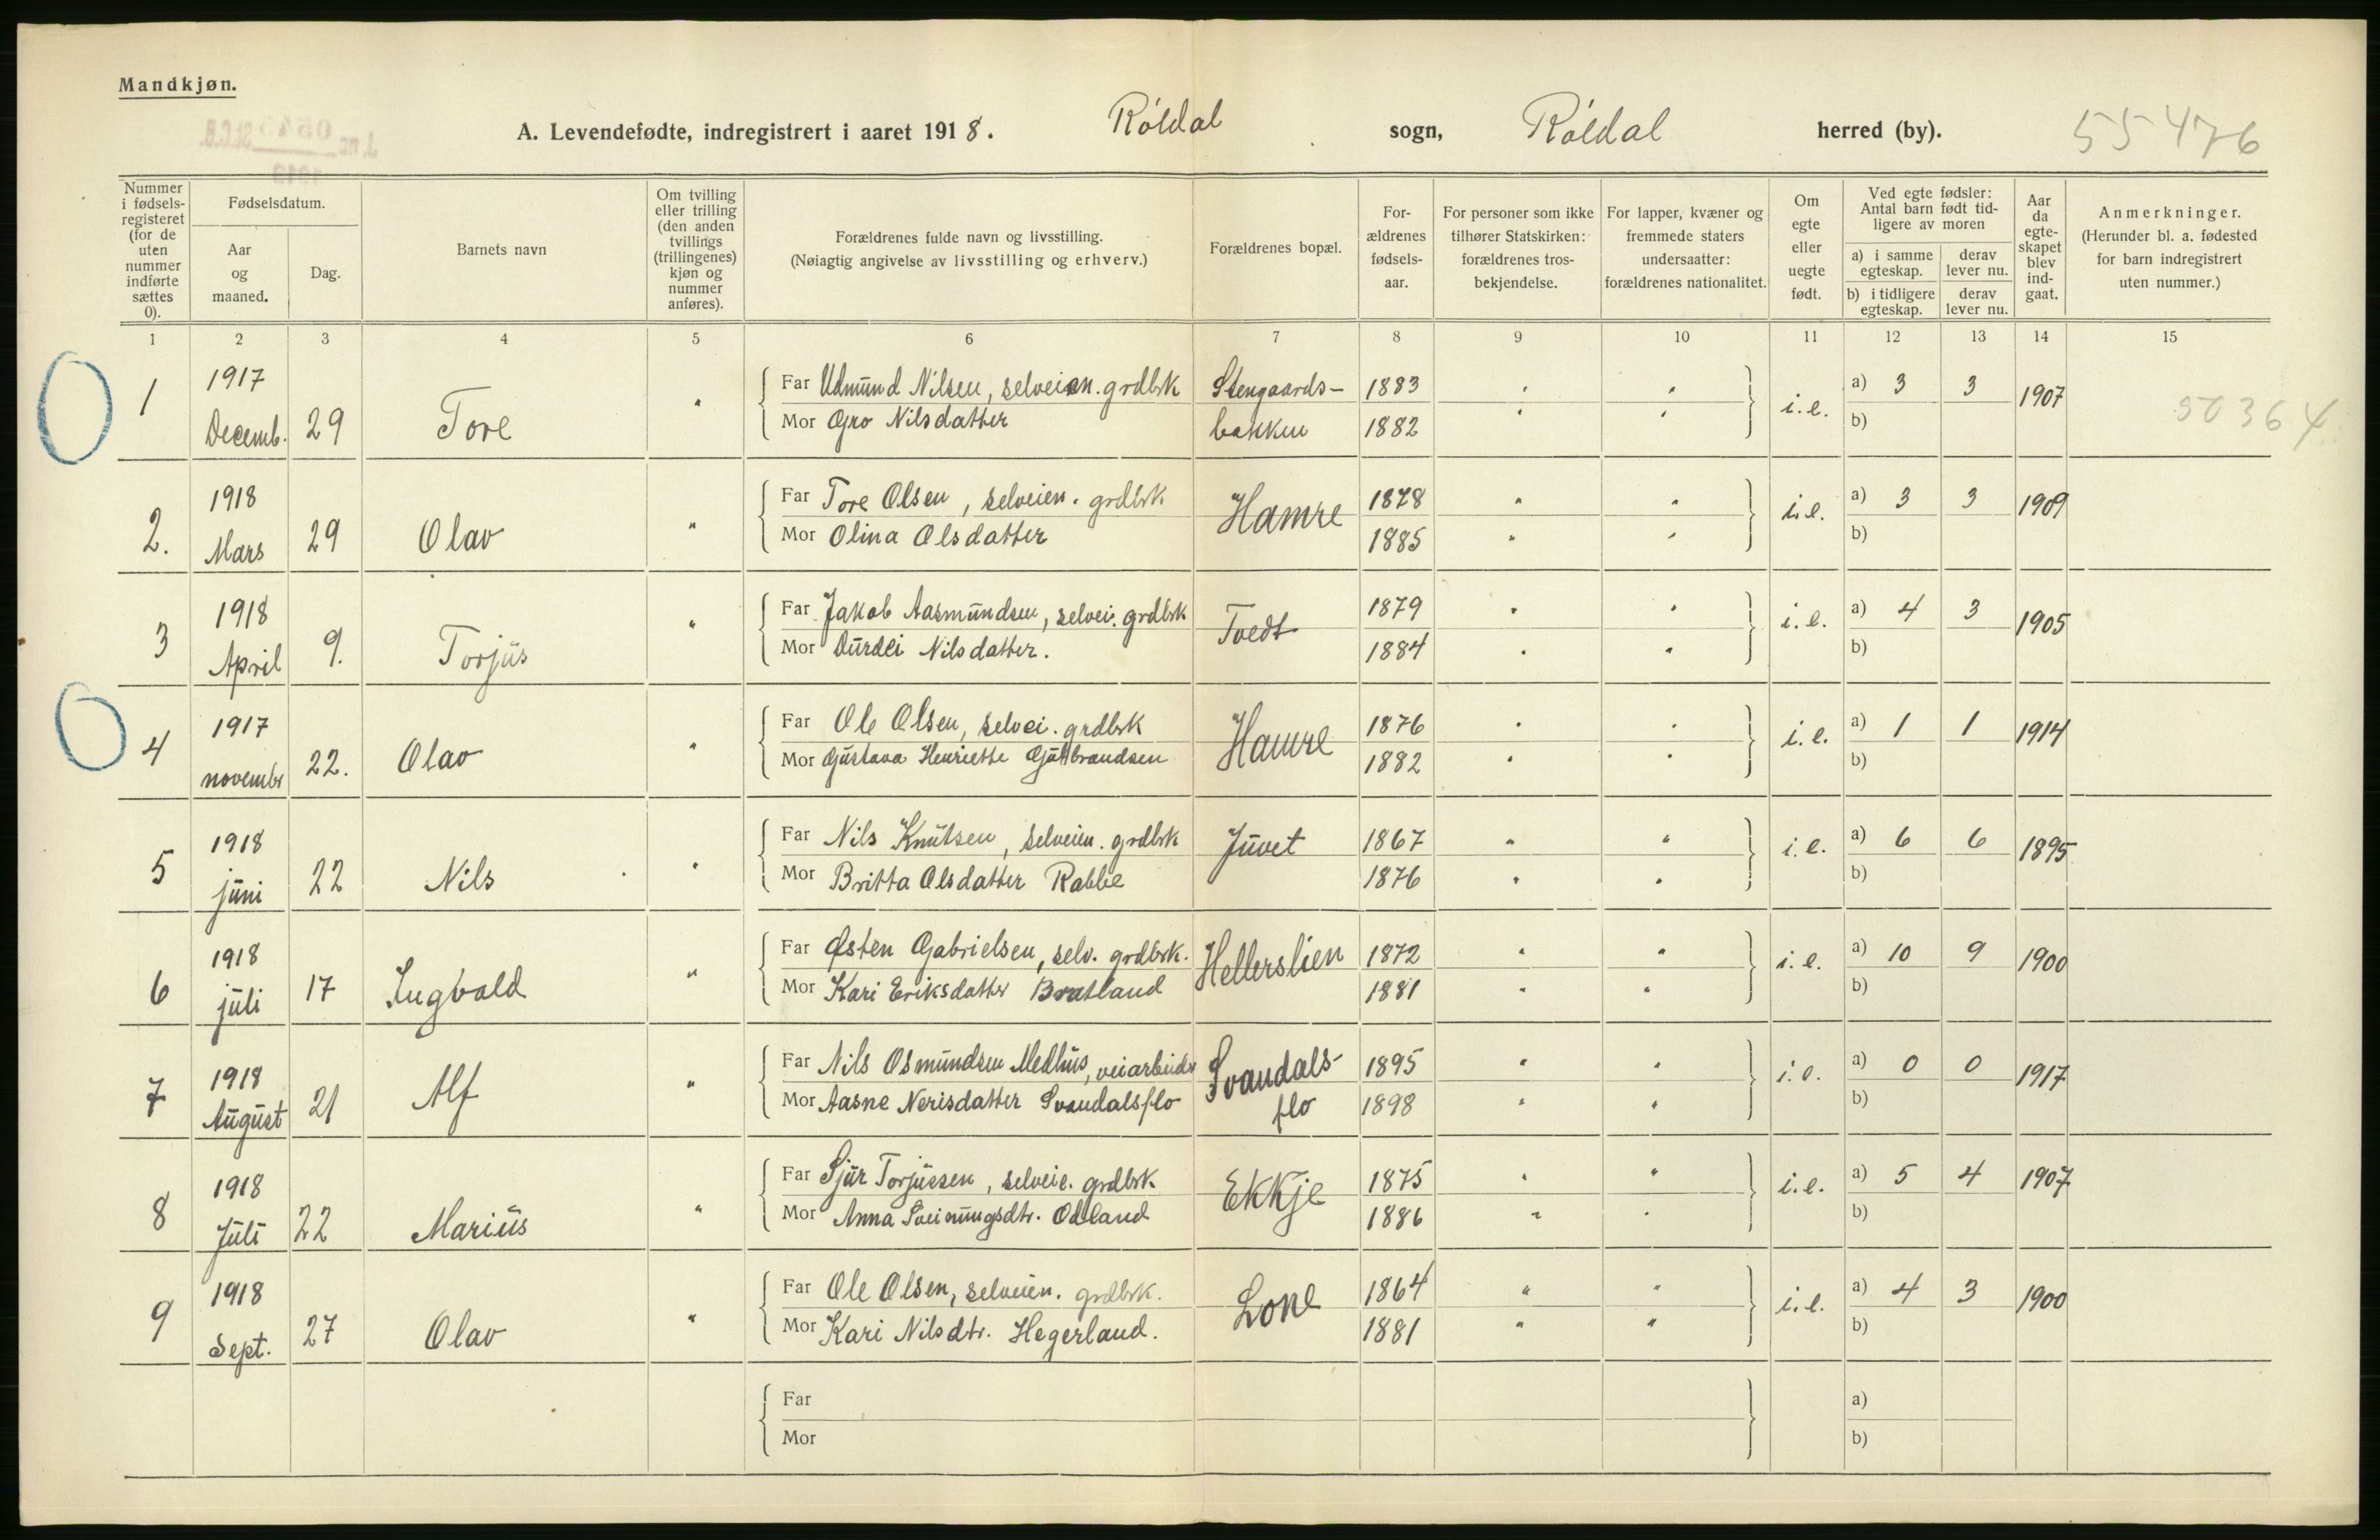 Mandkjøn.
A. Levendefødte, indregistrert i aaret 1918. Röldal sogn, Röldal herred (by). 55476
Nummer i fødsels-registeret (for de uten nummer indførte sættes 0).
Fødselsdatum.
Aar og maaned.
Dag.
Barnets navn
Om tvilling eller trilling (den anden tvillings (trillingenes) kjøn og nummer anføres).
Forældrenes fulde navn og livsstilling.
(Nøiagtig angivelse av livsstilling og erhverv.)
Forældrenes bopæl.
For-ældrenes fødsels-aar.
For personer som ikke tilhører Statskirken: forældrenes tros-bekjendelse.
For lapper, kvæner og fremmede staters undersaatter: forældrenes nationalitet.
Om egte eller uegte født.
Ved egte fødsler: Antal barn født tid-ligere av moren
a) i samme egteskap.
derav lever nu.
b) i tidligere egteskap.
derav lever nu.
Aar da egte-skapet blev ind-gaat.
Anmerkninger.
(Herunder bl. a. fødested for barn indregistrert uten nummer.)
1 2 3 4 5 6 7 8 9 10 11 12 13 14 15
1 1917 Decemb. 29 Tore " Far Udmund Nilsen, selveien. grdbrk Stengaards- 1883 " " i.e. a) 3 3 1907 50364
Mor Gro Nilsdatter bakken 1882 " " b)
2. 1918 Mars 29 Olav " Far Tore Olsen, selveien. grdbrk Hamre 1878 " " i.e. a) 3 3 1909
Mor Olina Olsdatter 1885 " " b)
3 1918 April 9. Torjus " Far Jakob Aasmundsen, selvei. grdbrk Tvedt 1879 " " i.e. a) 4 3 1905
Mor Durdei Nilsdatter. 1884 " " b)
4 1917 novembr 22. Olav " Far Ole Olsen, selvei. grdbrk Hamre 1876 " " i.e. a) 1 1 1914
Mor Gustava Henriette Guttbrandsen 1882 " " b)
5 1918 juni 22 Nils " Far Nils Knutsen, selveien. grdbrk Juvet 1867 " " i.e. a) 6 6 1895
Mor Britta Olsdatter Rabbe 1876 " " b)
6 1918 juli 17 Ingvald " Far Østen Gabrielsen, selv. grdbrk. Hellerslien 1872 " " i.e. a) 10 9 1900
Mor Kari Eriksdatter Bratland 1881 " " b)
7 1918 August 21 Alf " Far Nils Osmundsen Medhus, veiarbeider Svandals- 1895 " " i.e. a) 0 0 1917
Mor Aasne Nerisdatter Svandalsflo flo 1898 " " b)
8 1918 Juli 22 Marius " Far Sjur Torjussen, selveie. grdbrk. Ekkje 1875 " " i.e. a) 5 4 1907
Mor Anna Sveinungsdtr. Odland 1886 " " b)
9 1918 Sept. 27 Olav " Far Ole Olsen, selveien. grdbrk. Lone 1864 " " i.e. a) 4 3 1900
Mor Kari Nilsdtr. Hegerland. 1881 " " b)
Far a)
Mor b)